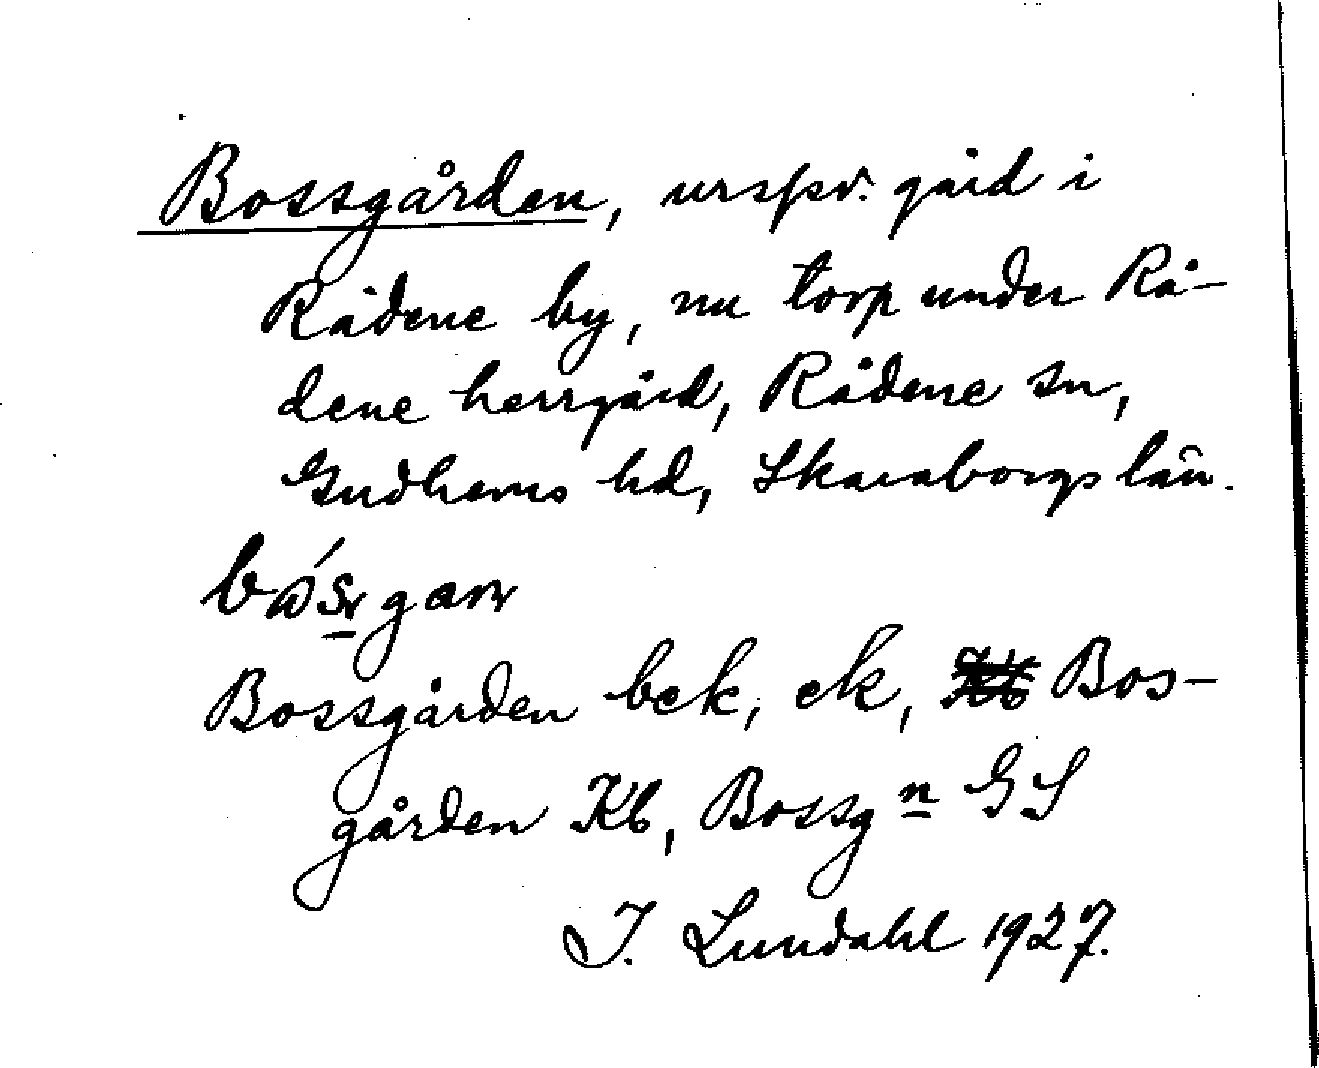 Bossgården, urspr. gård i
Rådene by, nu torp under Rå-
dene herrgård, Rådene sn,
Gudhems hd, Skaraborgs län.
Bossgården bek, ek, Bos-
gården Kb, Bossgn GS
I. Lundahl 1927.